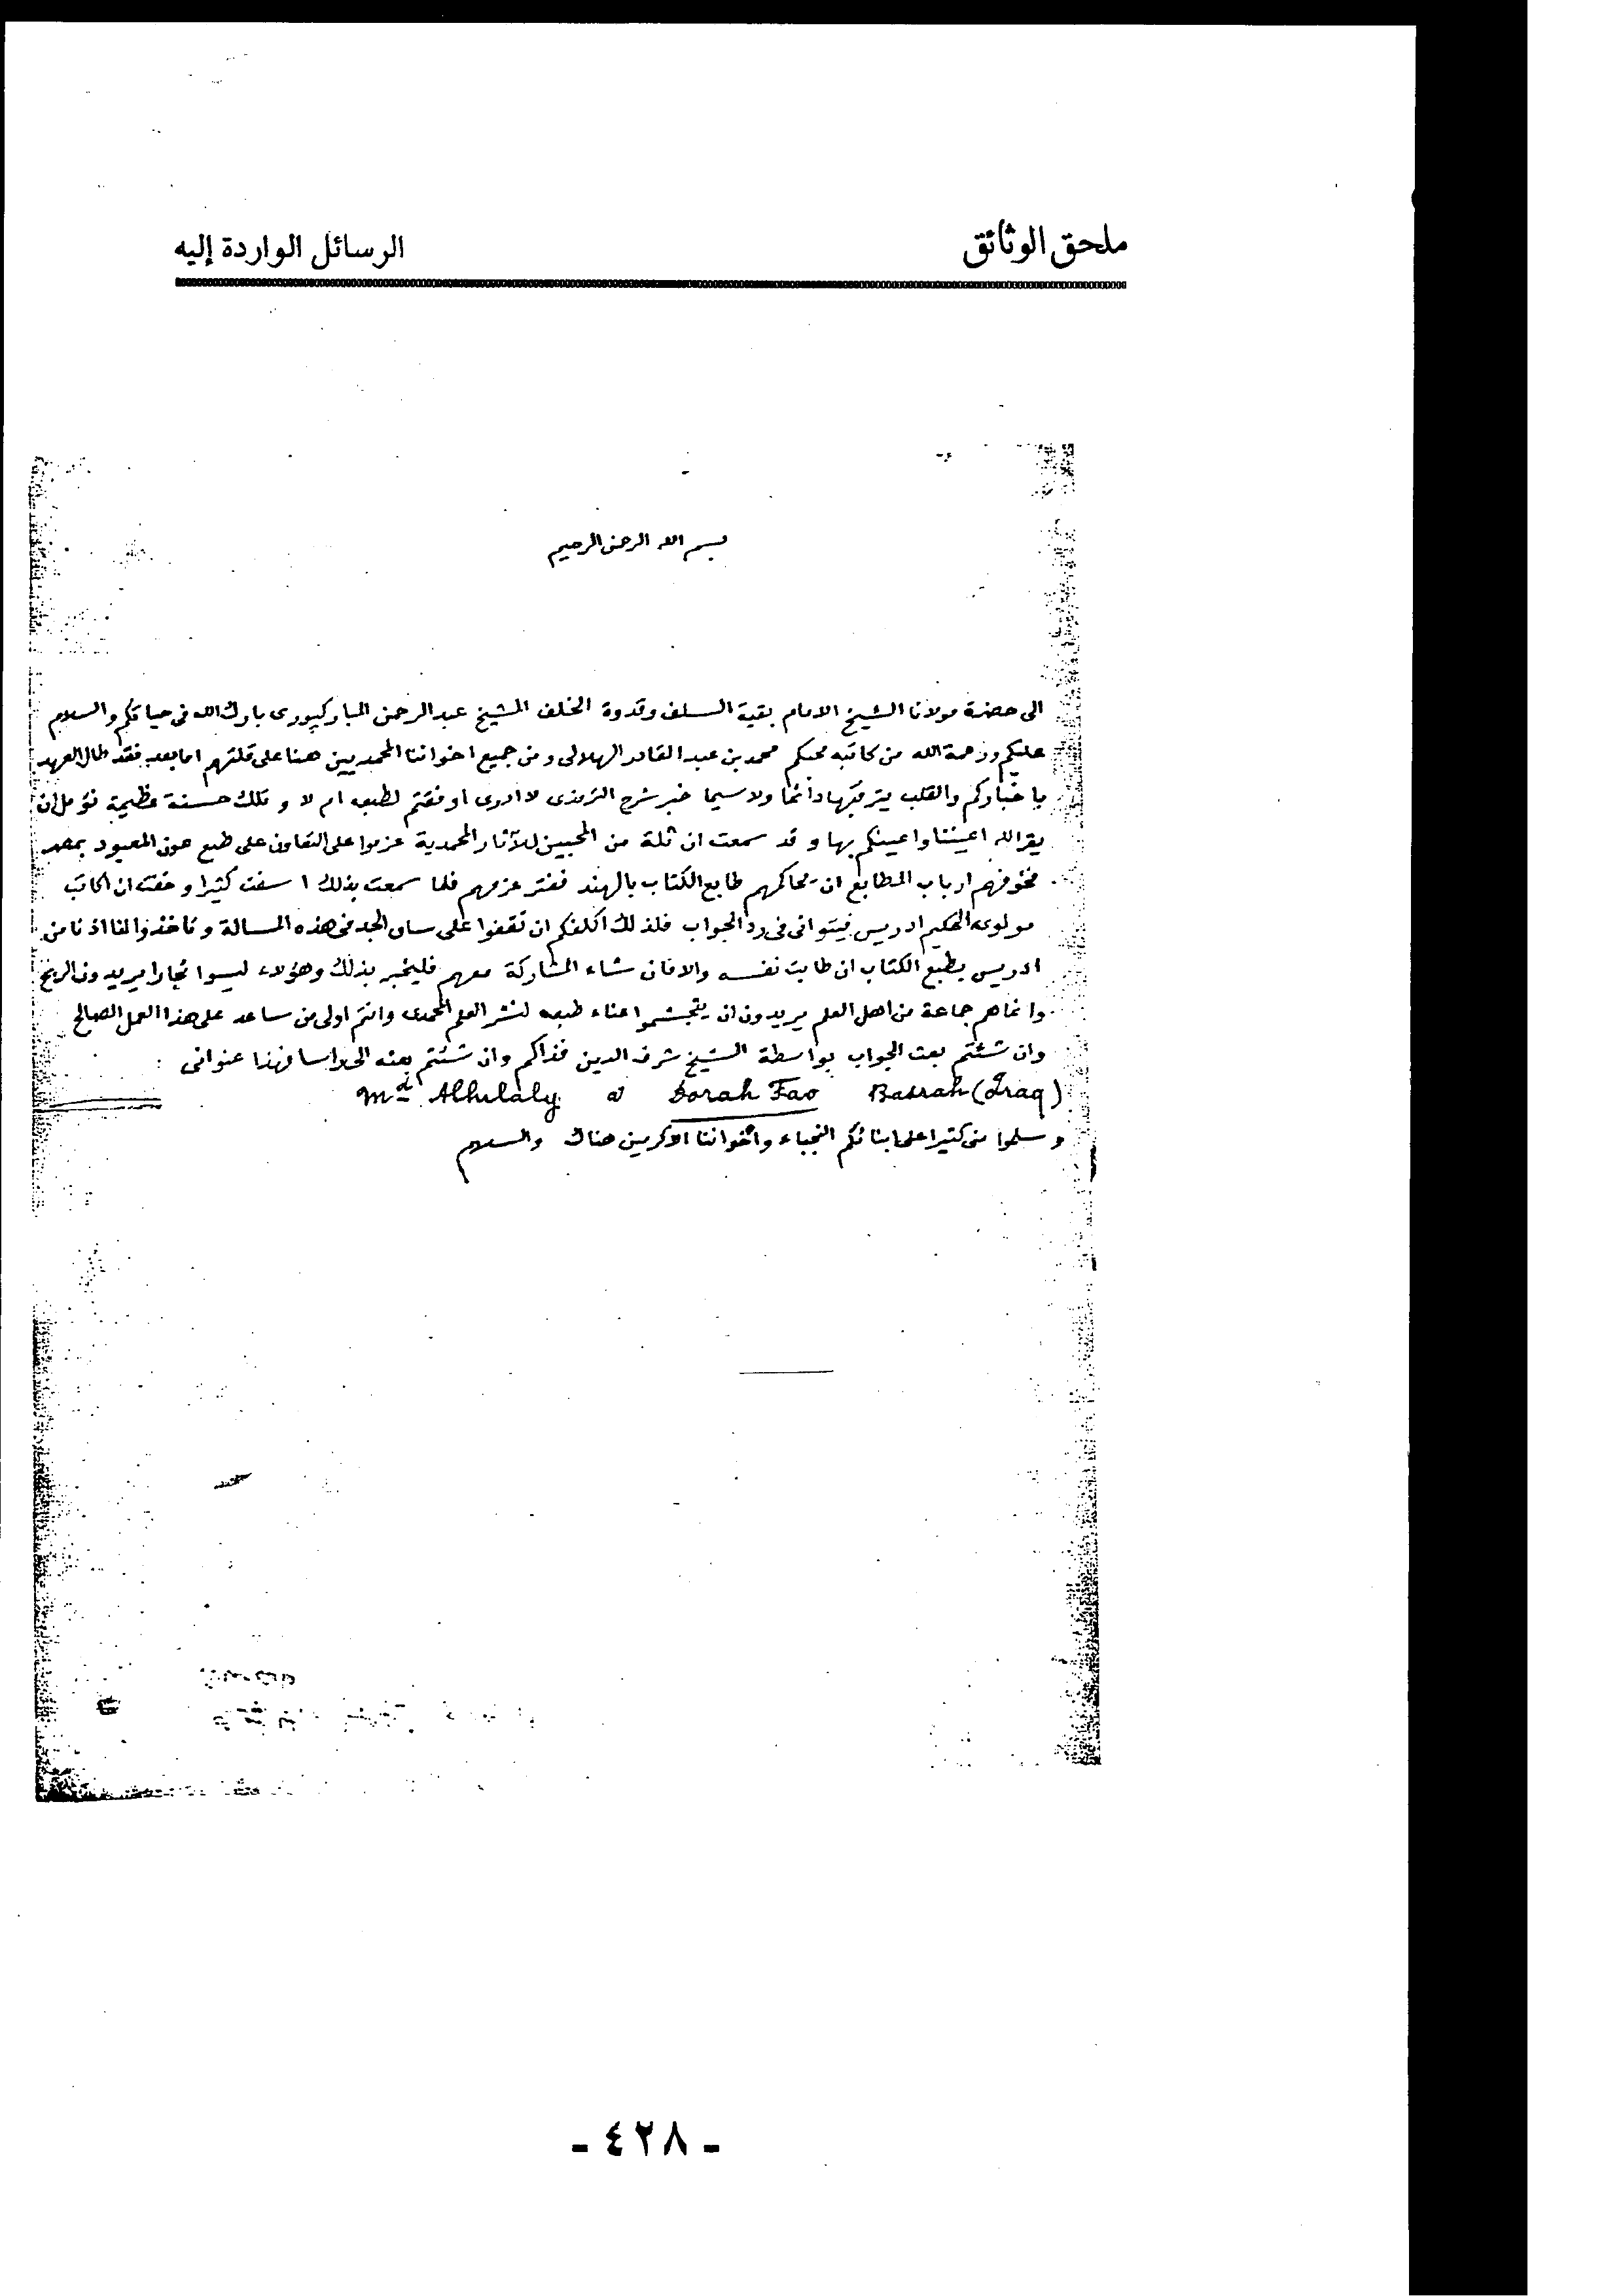 ملحق الوثائق
الرسائل الواردة إليه
بسم الله الرحمن الرحيم
الى حضرة مولانا الشيخ الامام بقية السلف وقدوة الخلف الشيخ عبد الرحمن المباركپورى بارك الله فى حياتكم والسلام
عليكم ورحمة الله من كاتبه محبكم محمد بن عبد القادر الهلالى ومن جميع اخواننا المحمديين هنا على قلتهم اما بعد فقد طال العهد
باخباركم والقلب يترقبها دائما ولا سيما خبر شرح الترمذى لا ادرى اوفقتم لطبعه ام لا وتلك حسنة عظيمة نؤمل ان
يقر الله اعيننا واعينكم بها وقد سمعت ان ثلة من المحبين للآثار المحمدية عزموا على التعاون على طبع عون المعبود بمصر
فخوفهم ارباب المطابع ان يحاكمهم طابع الكتاب بالهند ففتر عزمهم فلما سمعت بذلك اسفت كثيرا وخفت ان اكاتب
مولوى الحكيم ادريس فيتوانى فى رد الجواب فلذلك اكلفكم ان تقفوا على ساق الجد فى هذه المسالة وتاخذوا لنا اذنا من
ادريس بطبع الكتاب ان طابت نفسه والا فان شاء المشاركة معهم فليخبر بذلك وهؤلاء ليسوا تجارا يريدون الربح
وانما هم جماعة من اهل العلم يريدون ان يتجشموا عناء طبعه لنشر العلم المحمدى وانتم اولى من ساعد على هذا العمل الصالح
وان شئتم بعث الجواب بواسطة الشيخ شرف الدين فذاكم وان شئتم بعثه الى راسا فهذا عنوانى :
Md Alhilaly at Dorah Fao Basrah (Iraq)
وسلموا منى كثيرا على ابنائكم النجباء واخواننا الاكرمين هناك والسلام
- ٤٢٨ -